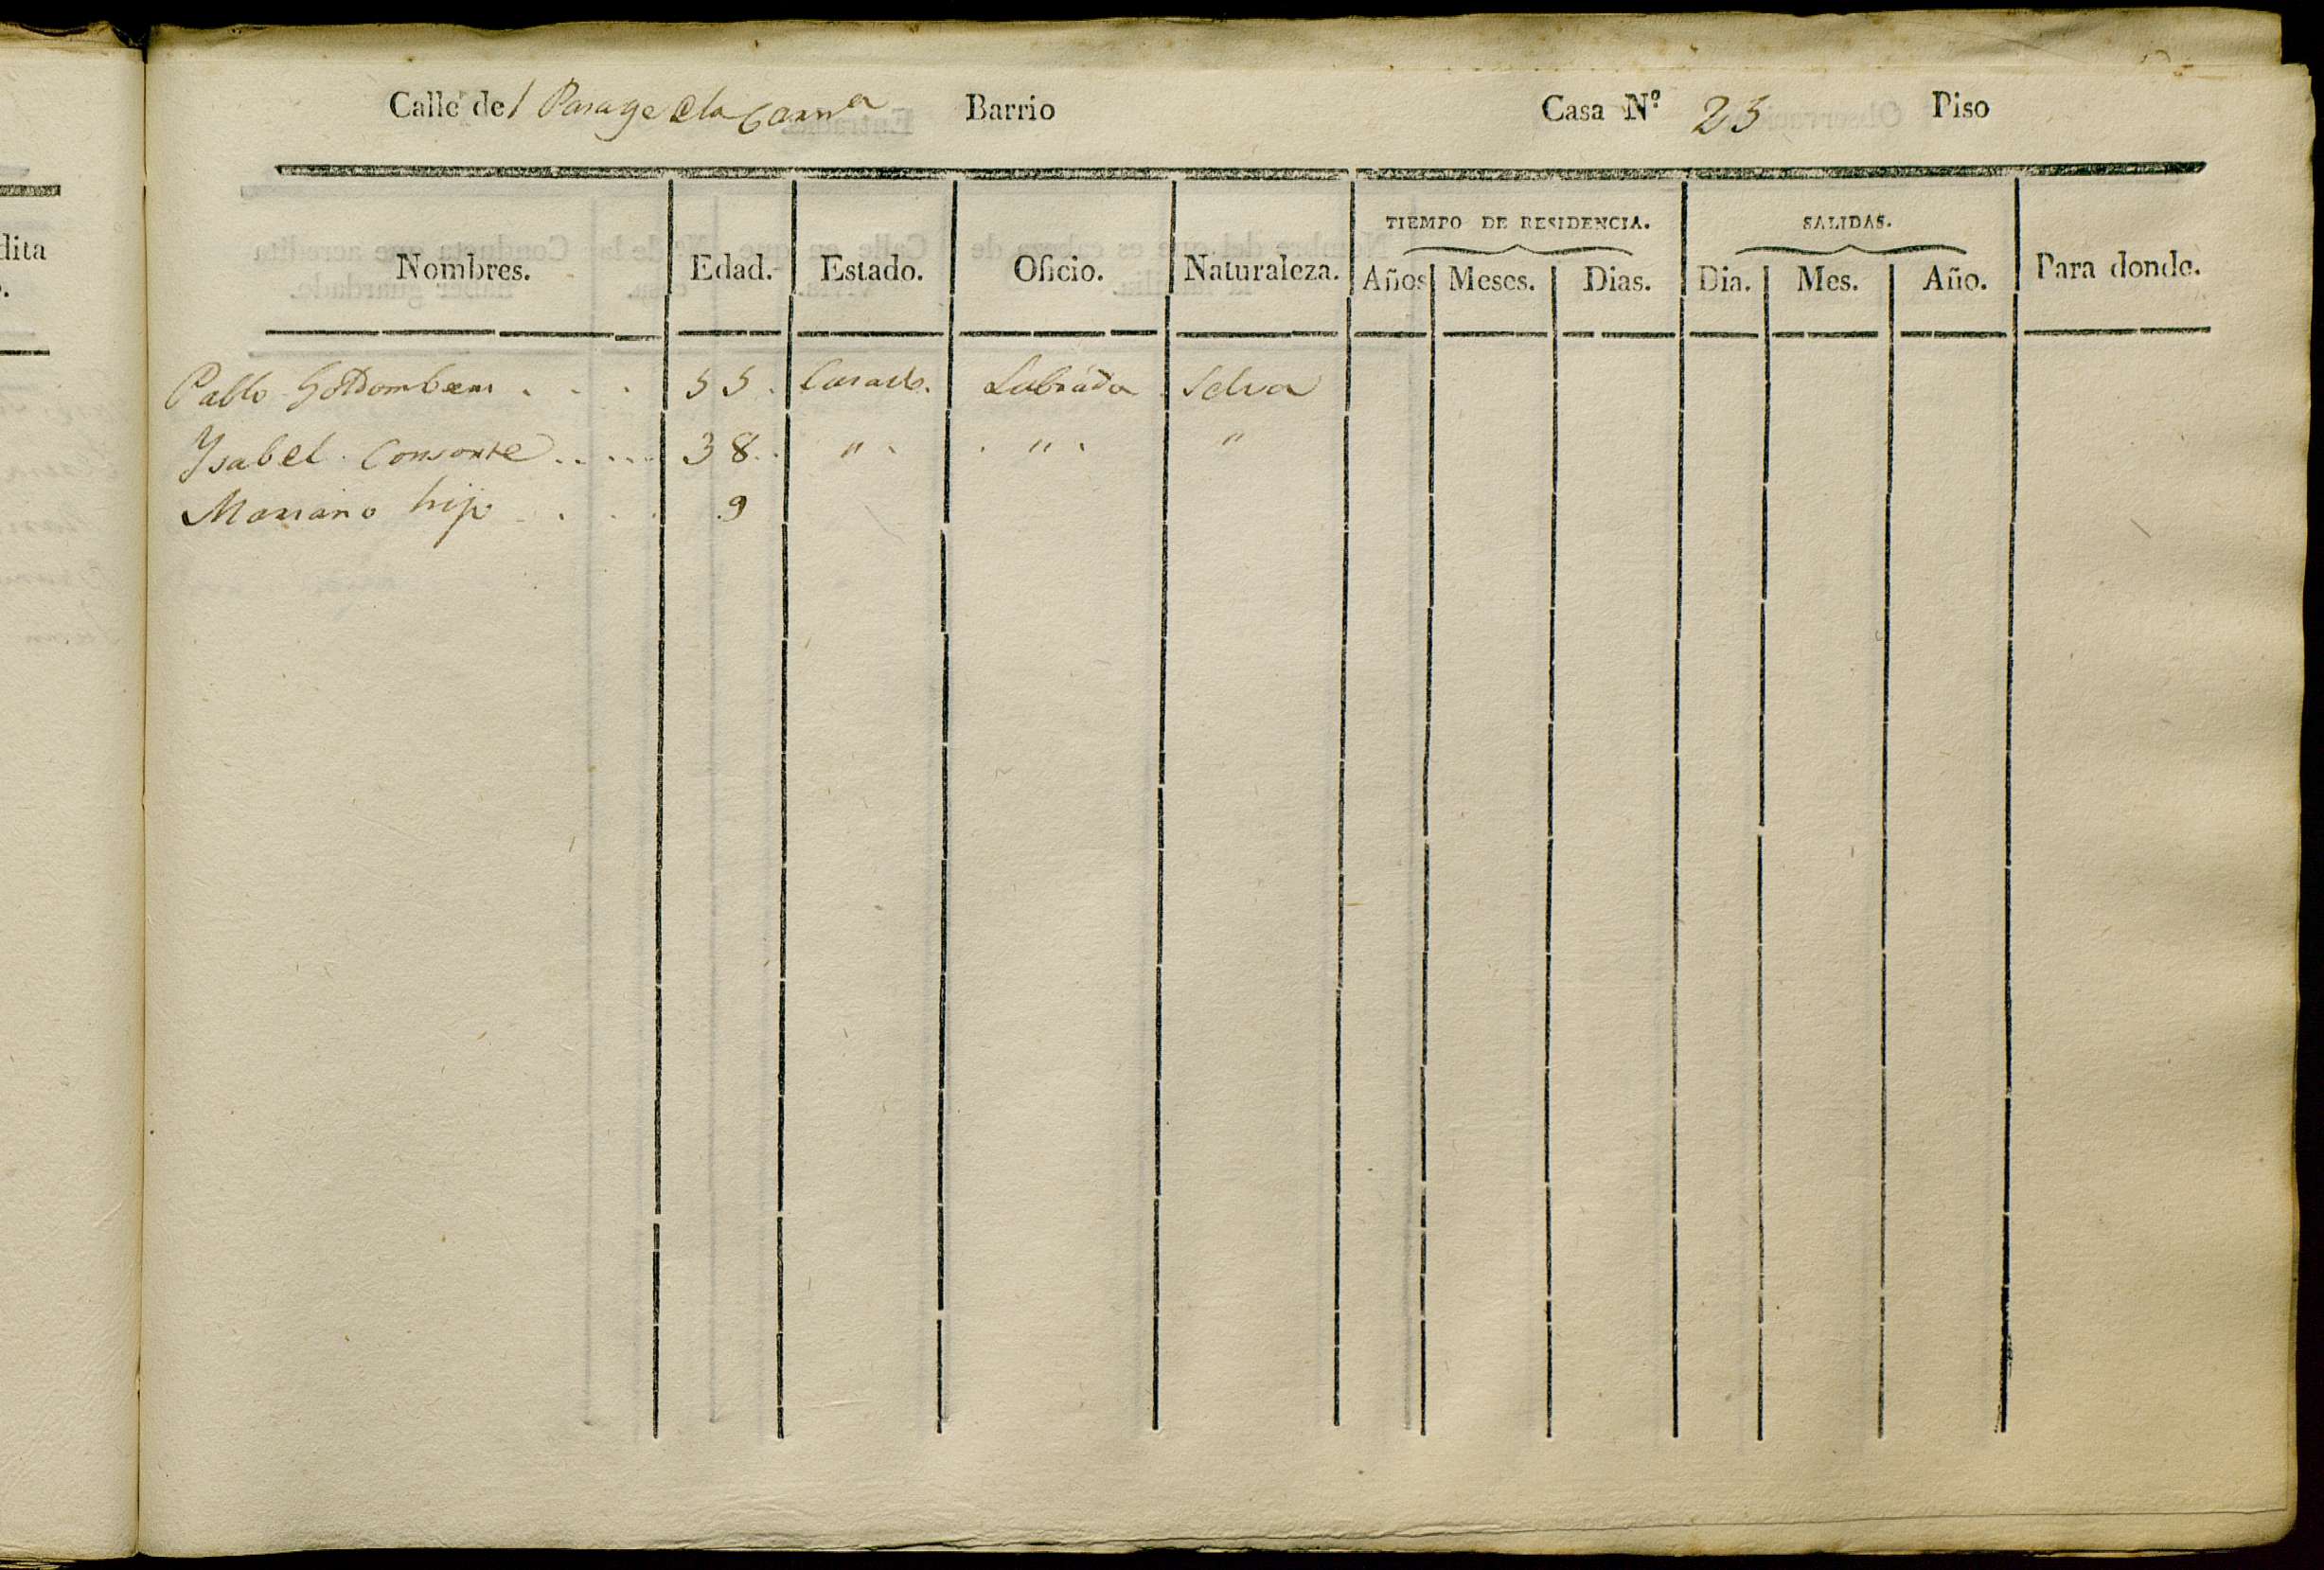 dita
Calle del Parage de la Carna Barrio Casa Nº 23 Piso
TIEMPO DE RESIDENCIA. SALIDAS.
Nombres. Edad. Estado. Oficio. Naturaleza. Años Meses. Dias. Dia. Mes. Año. Para donde.
Pablo . . . 55. Casado. Labrador Selva
Ysabel Consorte ..... 38.. " . . " . "
Mariano hijo . . . 9